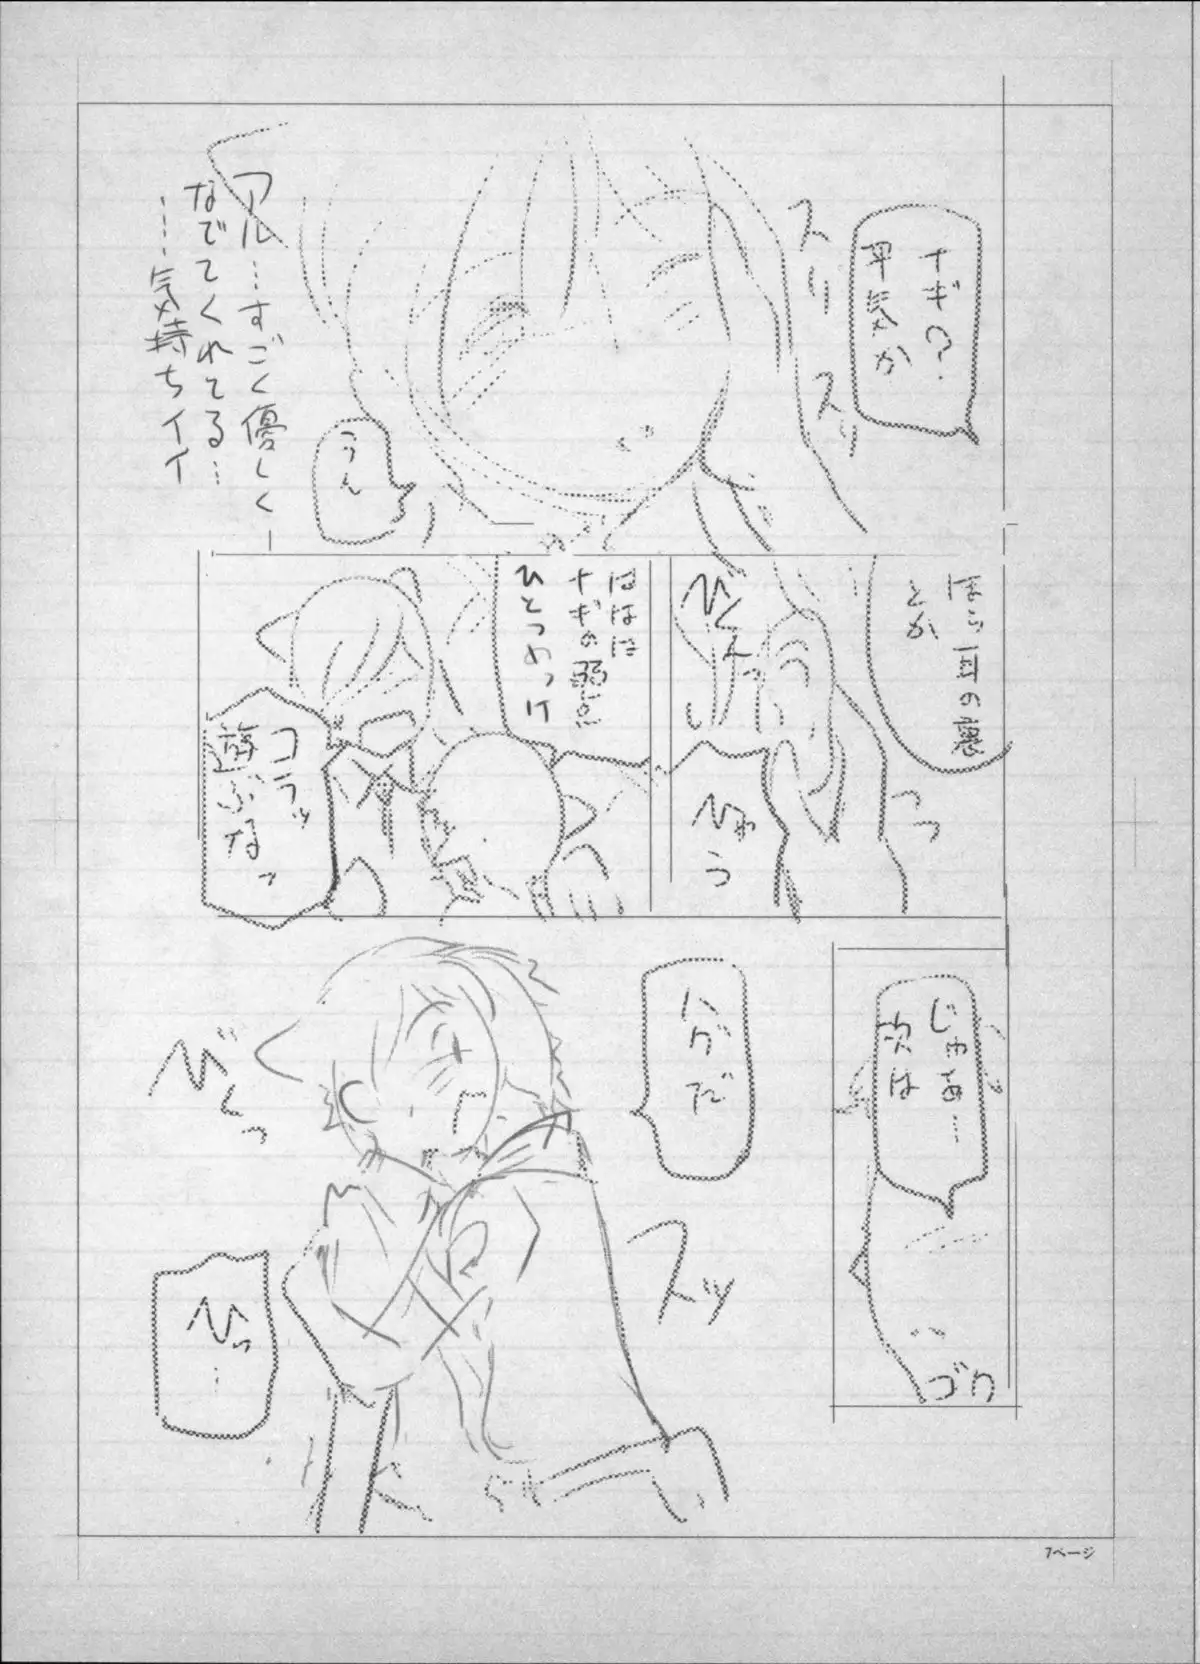 ナギ?
平気か
スリ
スリ
アル…すごく優しく
なでてくれてる…
……気持ちイイ
うん
ほら耳の裏
とか
びくんっ
ひゃう
ははは
ナギの弱点
ひとつめっけ
コラッ
遊ぶなっ
じゃあ…
次は
ゴク
ハグだ
スッ
びくっ
ひっ…
7ページ